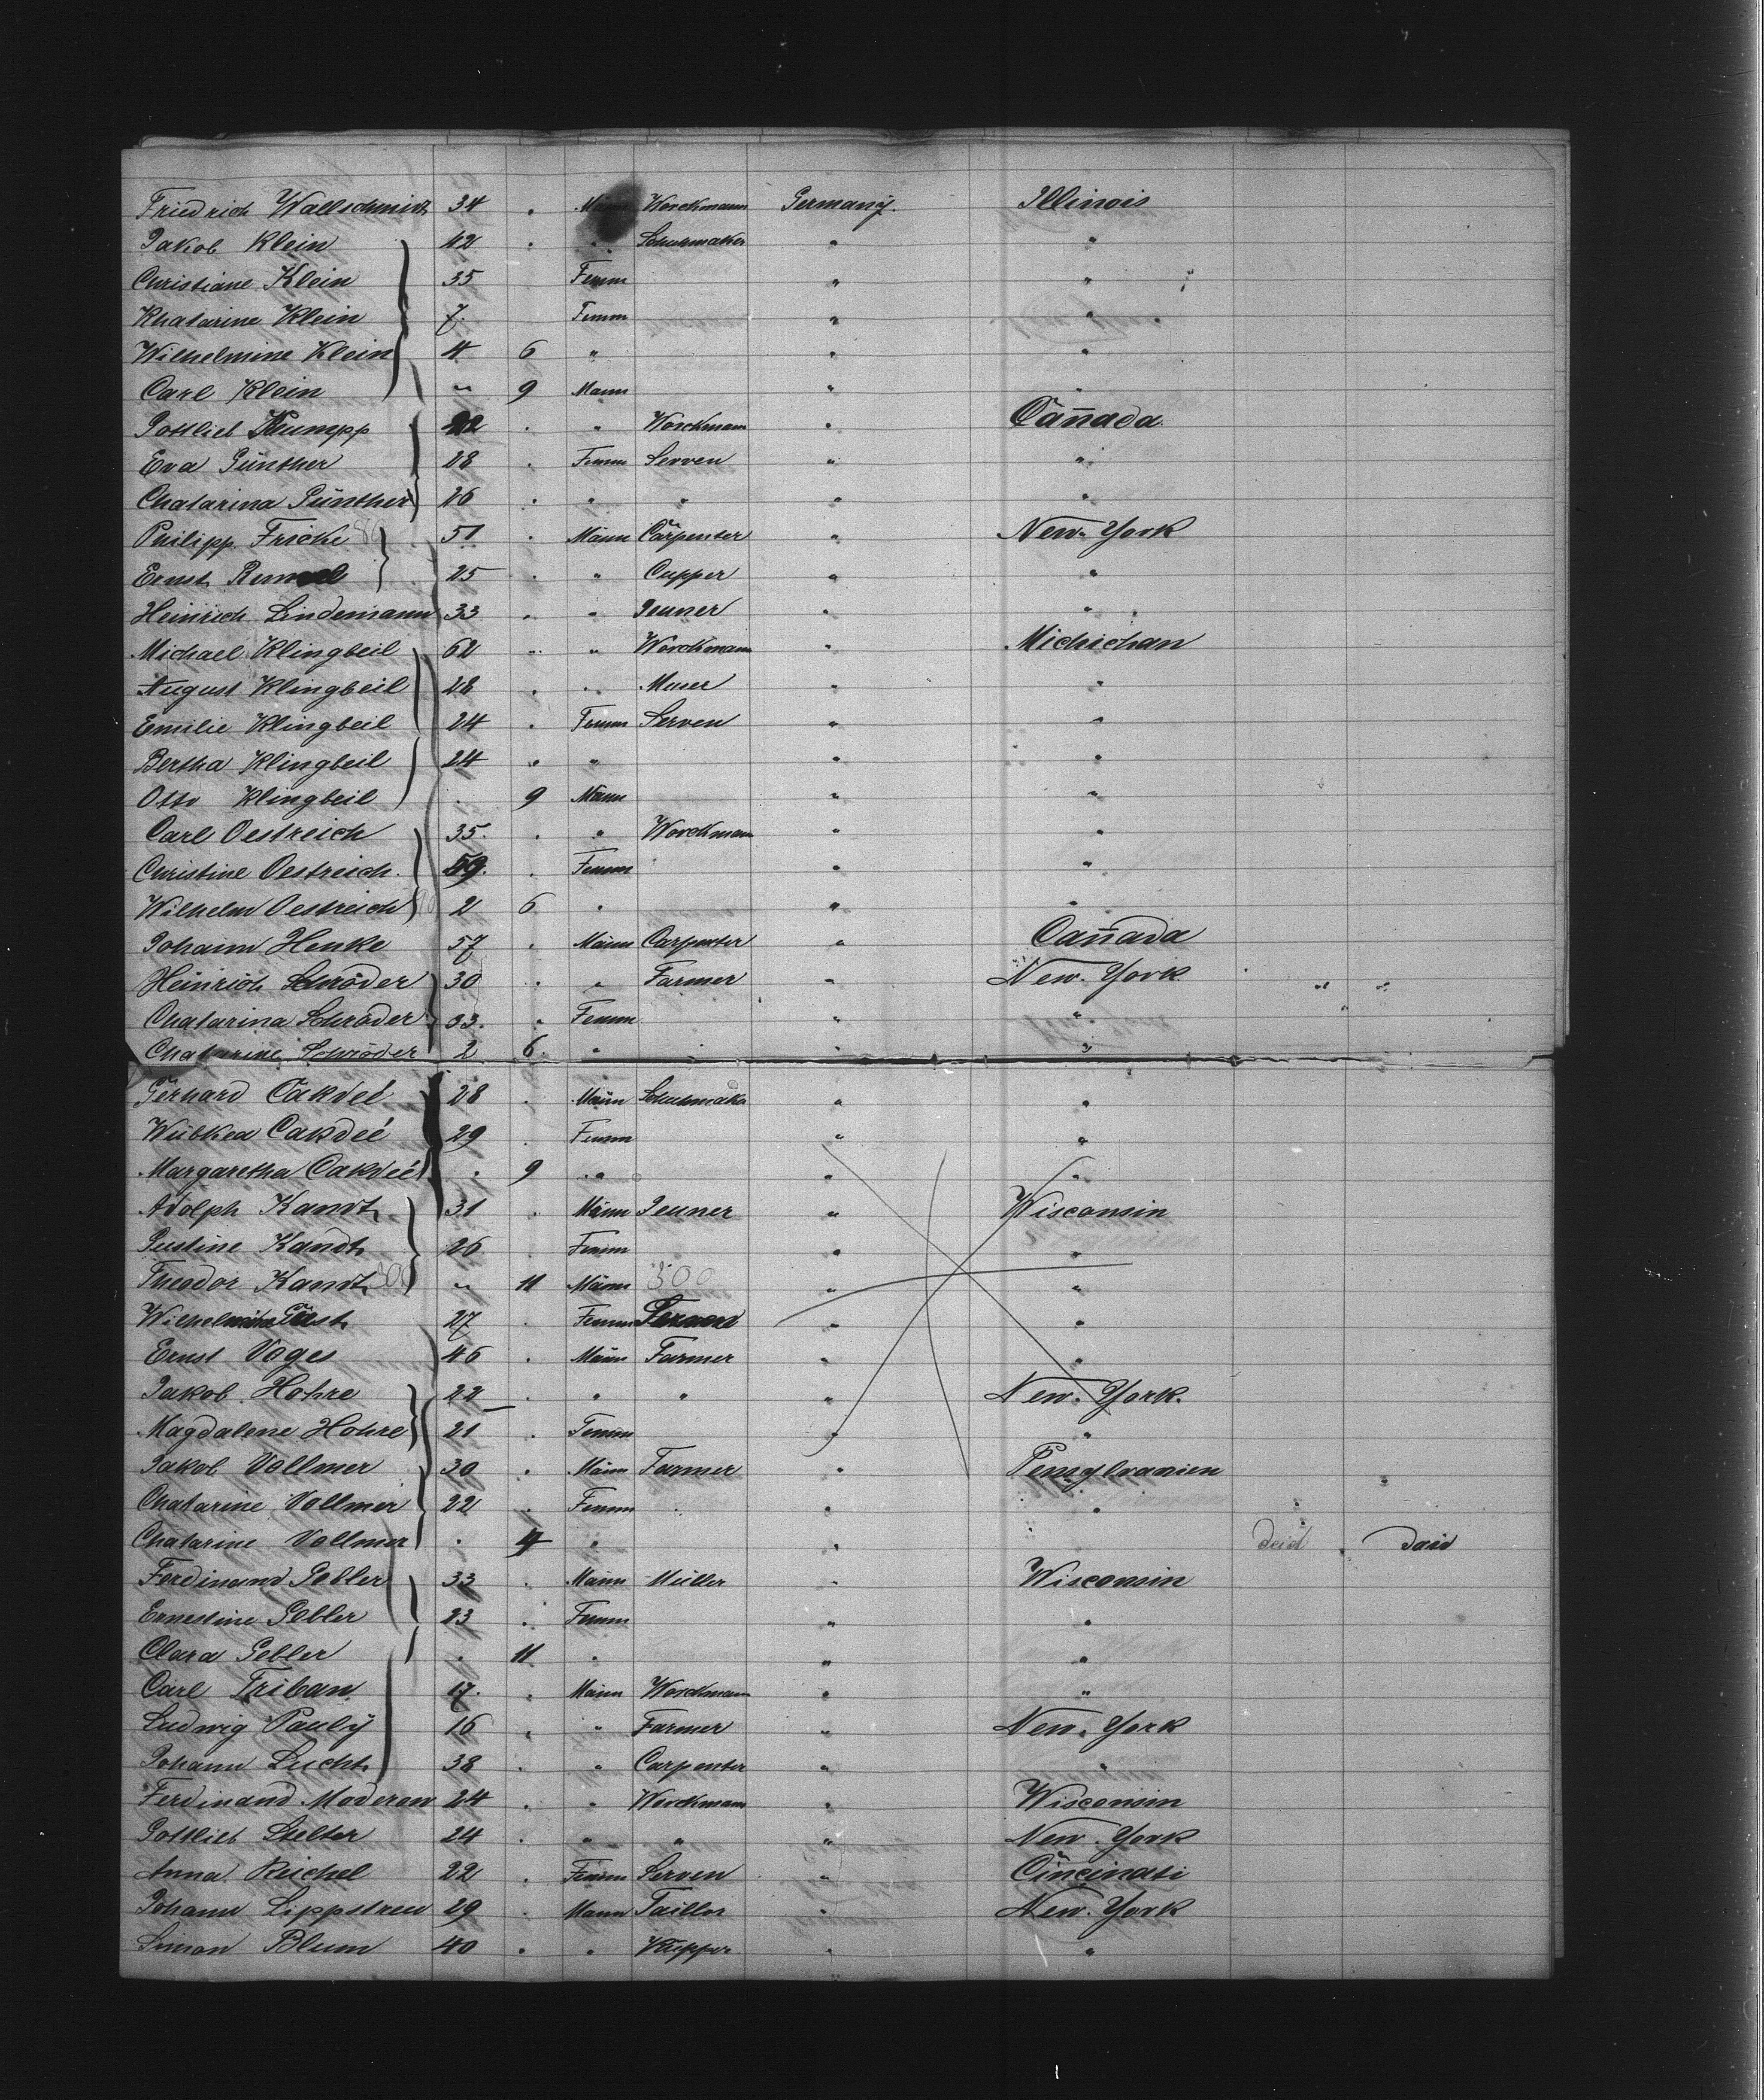 Friedrich Wallschmidt 34 " Mann Worckmann Germany. Illinois
Jakob Klein 42 " " Schuhmaker " "
Christiane Klein 35 Femm " "
Khatarine Klein 7. Femm " "
Wilhelmine Klein 4 6 " " "
Carl Klein " 9 Mann " "
Gottlieb Klumpp 22 " " Worckmann " Canada.
Eva Günther 28 " Femm Serven " "
Chatarina Günther 26 " " " " "
Philipp Fricke 51 " Mann Carpenter " New-York
Ernst 25 " " Cupper " "
Heinrich Lindemann 33 " " Jeuner " "
Michael Klingbeil 62 " " Worckmann " Michichan
August Klingbeil 28 " " Muser " "
Emilie Klingbeil 24 " Femm Serven " "
Bertha Klingbeil 24 " " " "
Otto Klingbeil " 9 Mann " "
Carl Oestreich 35. " " Worckmann " "
Christine Oestreich. 59. " Femm " "
Wilhelm Oestreich 2 6 " " "
Johann Henke 57 " Mann Carpenter " Canada
Heinrich Schröder 30 " " Farmer " New-York
Chatarina Schröder 33. " Femm " "
Chatarine Schröder 2 6. " " "
Gerhard Cakdeé 28 " Mann Schuhmaker " "
Wübkea Cakdeé 29 " Femm " "
Margaretha Cakdeé " 9 " " "
Adolph Kandt 31 " Mann Jeuner " Wisconsin
Justine Kandt 26 " Femm " "
Theodor Kandt " 11 Mann 300 " "
27 " Femm " "
Ernst Voges 46 " Mann Farmer " "
Jakob Hohre 22 " " " " New-York.
Magdalene Hohre 21 " Femm " "
Jakob Vollmer 30 " Mann Farmer " Pensylvanien
Chatarine Vollmer 22 " Femm " "
Chatarine Vollmer " 4 " " " deid daid
Ferdinand Gebler 33 " Mann Müller " Wisconsin
Ernestine Gebler 23 " Femm " "
Clara Gebler " 11 " " "
Carl Triban 17. " Mann Worckmann " "
Ludwig Pauly 16 " " Farmer " New-York
Johann Lucht 38 " " Carpenter " "
Ferdinand Moderow 24 " " Worckmann " Wisconsin
Gottlieb Stelter 24 " " " " New-York
Anna Reichel 22 " Femm Serven " Cincinati
Johann Lippstreu 29 " Mann Taillor " New-York
Simon Blum 40 " " Küpper " "